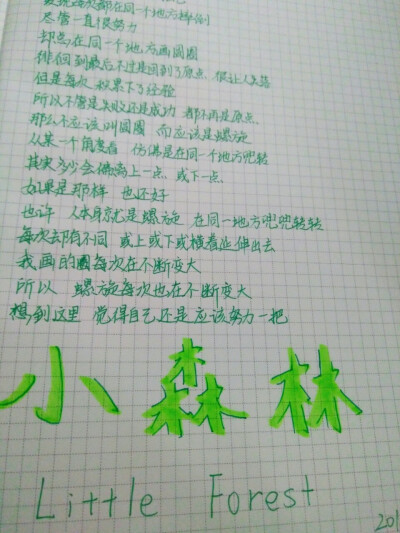 每次都在同一个地方
尽管一直很努力
却总在同一个地方画圆圈
徘徊到最后不过是回到了原点 很让人失落
但是每次积累下了经验
所以不管是失败还是成功 都不再是原点
那么不应该叫圆圈 而应该是螺旋
从某一个角度看 仿佛是在同一个地方兜转
其实多少会偏离上一点 或下一点
如果是那样 也还好
也许 人本身就是螺旋 在同一地方兜兜转转
每次却有不同 或上或下或横着延伸出去
我画的圆每次在不断变大
所以 螺旋每次也在不断变大
想到这里 觉得自己还是应该努力一把
小森林
Little Forest
201